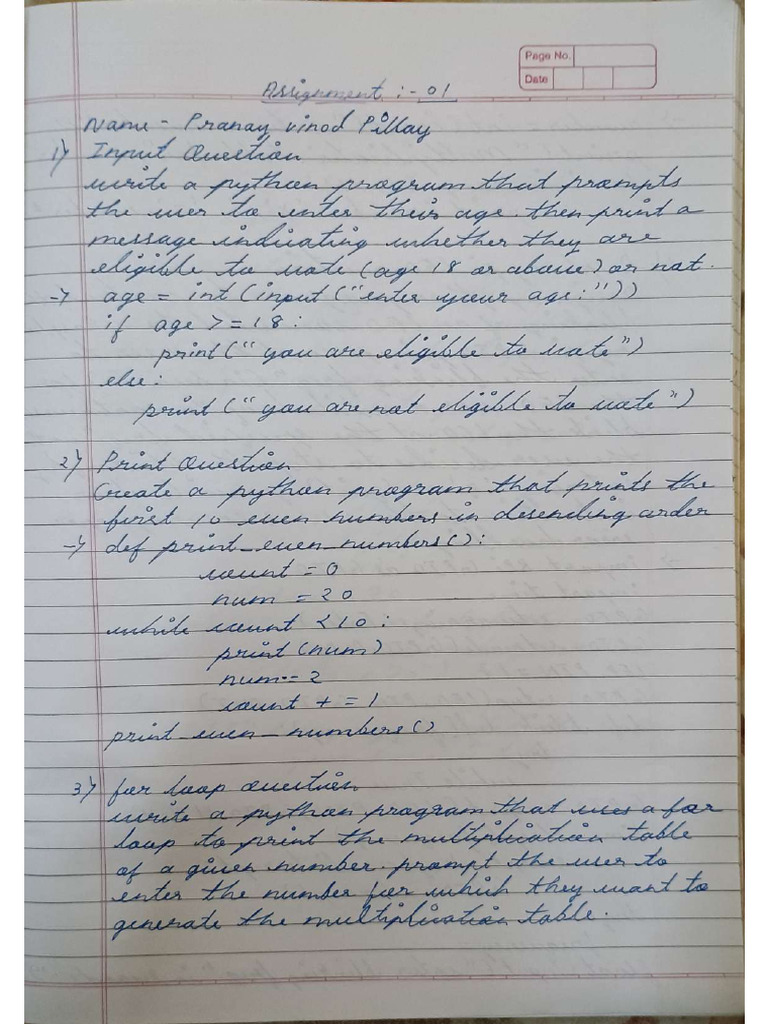 Page No.
Date
Assignment :- 01
Name - Pranay vinod Pillay
1) Input Question
write a python program that prompts
the user to enter their age. then print a
message indicating whether they are
eligible to vote (age 18 or above) or not.
-> age = int (input ("enter your age:"))
if age >= 18:
print(" you are eligible to vote")
else:
print (" you are not eligible to vote")
2) Print Question
Create a python program that prints the
first 10 even numbers in desending order
-> def print_even_numbers():
count = 0
num = 20
while count < 10 :
print (num)
num -= 2
count += 1
print_even_numbers()
3) for loop question
write a python program that uses a for
loop to print the multiplication table
of a given number. prompt the user to
enter the number for which they want to
generate the multiplication table.